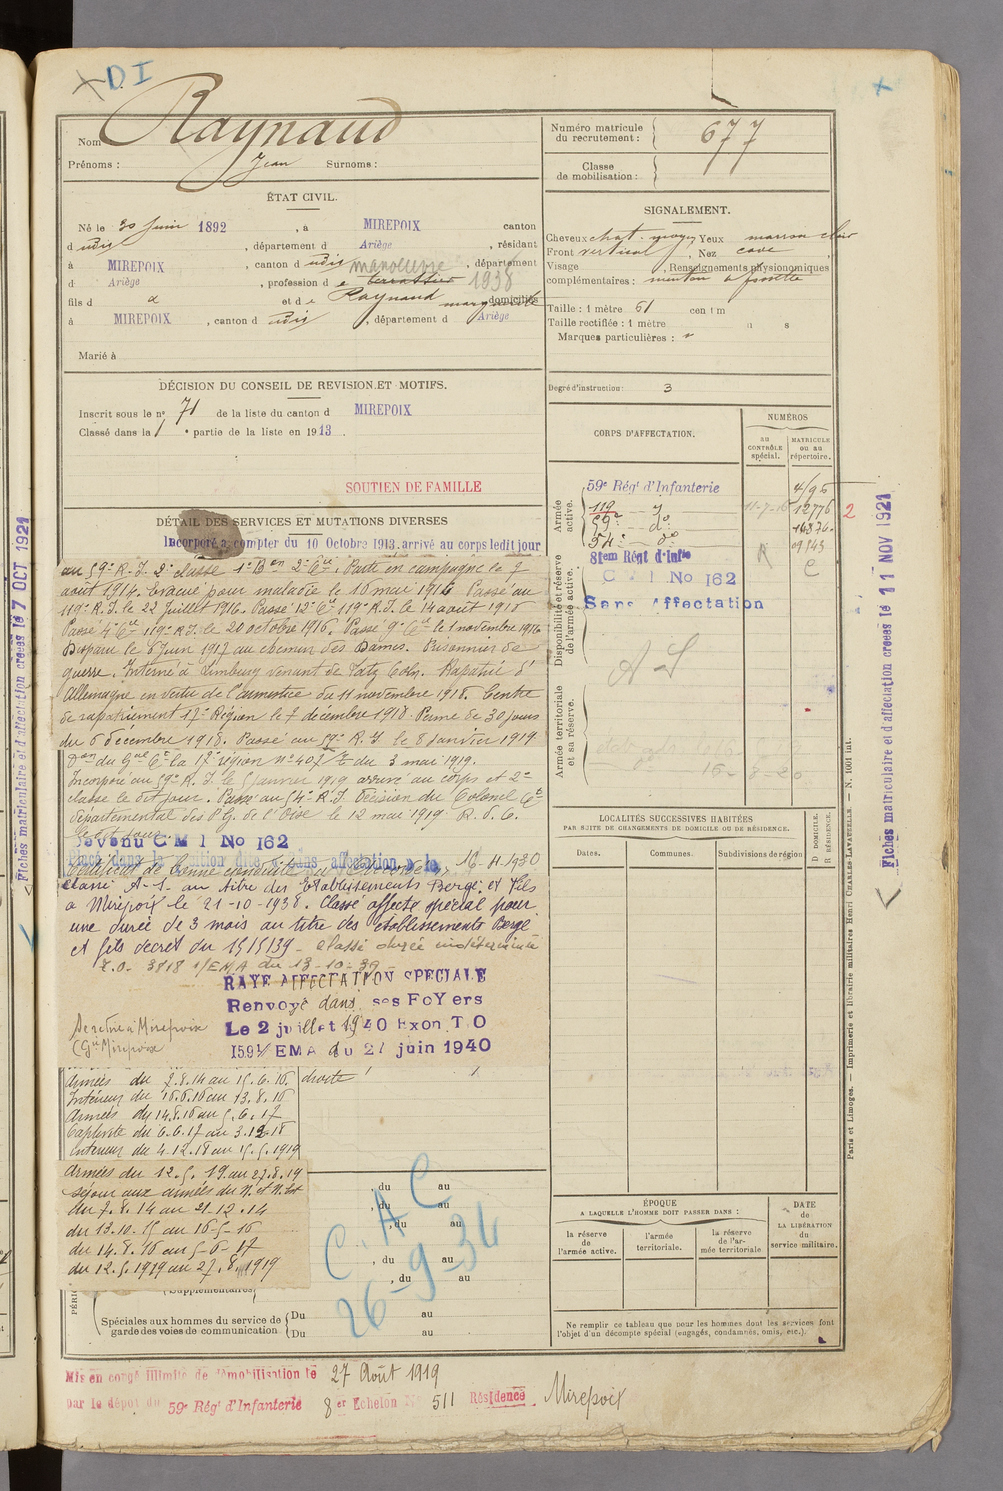 D. I
Nom Raynaud
Prénoms : Jean Surnoms :
ÉTAT CIVIL.
Né le 30 Juin 1892, à MIREPOIX canton
d udis, département d Ariège, résidant
à MIREPOIX, canton d udis manoeuvre, département
d Ariège, profession d e terrassier 1938
fils d et d e Raynaud marguerite domiciliés
à MIREPOIX, canton d udis, département d Ariège
Marié à
DÉCISION DU CONSEIL DE REVISION ET MOTIFS.
Inscrit sous le n° 71 de la liste du canton d MIREPOIX
Classé dans la 1e partie de la liste en 1913.
SOUTIEN DE FAMILLE
DÉTAIL DES SERVICES ET MUTATIONS DIVERSES
Incorporé à compter du 10 Octobre 1913. arrivé au corps ledit jour
au 59e R.I. 2e classe 1er Bon 2e Cie. Parti en campagne le 7
août 1914. Evacué pour maladie le 16 mai 1916 Passé au
119e R.I. le 22 Juillet 1916. Passé 12e Cie 119e R.I. le 14 août 1916
Passé 4e Cie 119e R.I. le 20 octobre 1916. Passé 9e Cie le 1 novembre 1916
Disparu le 6 Juin 1917 au chemin des Dames. Prisonnier de
guerre. Interné à Limburg venant de Coln. Rapatrié d'
Allemagne en vertu de l'armistice du 11 novembre 1918. Centre
de rapatriement 17e Région le 7 décembre 1918 Perme de 30 jours
du 6 décembre 1918. Passé au 59e R.I. le 8 janvier 1919
Don du Gral Ct la 17e région n° 407 du 3 mai 1919.
Incorporé au 59e R.I. le 5 janvier 1919 arrivé au corps et 2e
classe le dit jour. Passé au 54e R.I. Décision du Colonel Ct
départemental des P.G. de l'Oise le 12 mai 1919 R. d. C.
le dit jour.
Devenu C M I No 162
Placé dans la position dite sans affectation 16-4-1930
Certificat de bonne conduite
classé A-S- au titre des Etablissements Bergé et Fils
à Mirepoix le 21-10-1938. Classé affecté spécial pour
une durée de 3 mois au titre des établissements Bergé
et fils décret du 15/5/39 - classé durée indéterminée
I.O. 3818 1/EMA du 13-10-39
RAYE AFFECTATION SPECIALE
Renvoyé dans ses FoYers
Le 2 juillet 1940 Exon T O
1591/EMA du 21 juin 1940
Se retire à Mirepoix
(Gie Mirepoix
Armées du 7.8.14 au 15.6.16. droite
Intérieur du 16.6.16 au 13.8.16
Armées du 14.8.16 au 5.6.17
Captivité du 6.6.17 au 3.12.18
Intérieur du 4.12.18 au 11.5.1919
Armées du 12.5.19 au 27.8.19
séjour aux armées du N. et N. Est
du 7.8.14 au 21.12.14
du 13.10.15 au 16-5-16
du 14.8.16 au 5-6-17
du 12.5.1919 au 27.8.1919
, du au
, du au
, du au
, du au
, du au
C. A C
26-9-34
(Supplémentaires)
Spéciales aux hommes du service de garde des voies de communication
Du au
Du au
Mis en congé illimité de démobilisation le 27 Août 1919
par le dépôt du 59e Rég' d'Infanterie 8er Echelon N° 511 Résidence Mirepoix
Numéro matricule du recrutement : 677
Classe de mobilisation :
SIGNALEMENT.
Cheveux chat. moyen Yeux marron clair
Front vertical, Nez cave
Visage, Renseignements physionomiques
complémentaires : menton à fossette
Taille : 1 mètre 61 centim
Taille rectifiée : 1 mètre
Marques particulières : "
Degré d'instruction : 3
CORPS D'AFFECTATION.
NUMÉROS
au CONTRÔLE spécial.
MATRICULE ou au répertoire.
Armée active.
59e Rég' d'Infanterie 4196
119 11-7-16 12776 2
59e d°
54e d°
Disponibilité et réserve de l'armée active.
81em Régt d'Infie
C M I No 162
Sans Affectation
A S
Armée territoriale et sa réserve.
LOCALITÉS SUCCESSIVES HABITÉES
PAR SUITE DE CHANGEMENTS DE DOMICILE OU DE RÉSIDENCE.
Dates. Communes. Subdivisions de région
D DOMICILE.
R RÉSIDENCE.
ÉPOQUE
A LAQUELLE L'HOMME DOIT PASSER DANS :
la réserve de l'armée active.
l'armée territoriale.
la réserve de l'armée territoriale
DATE de LA LIBÉRATION du service militaire.
Ne remplir ce tableau que pour les hommes dont les services font
l'objet d'un décompte spécial (engagés, condamnés, omis, etc.).
Paris et Limoges. — Imprimerie et librairie militaires Henri CHARLES-LAVAUZELLE. — N. 1001 int.
Fiches matriculaire et d'affectation créées le 11 NOV 1921
Fiches matriculaire et d'affectation créées le 7 OCT 1921